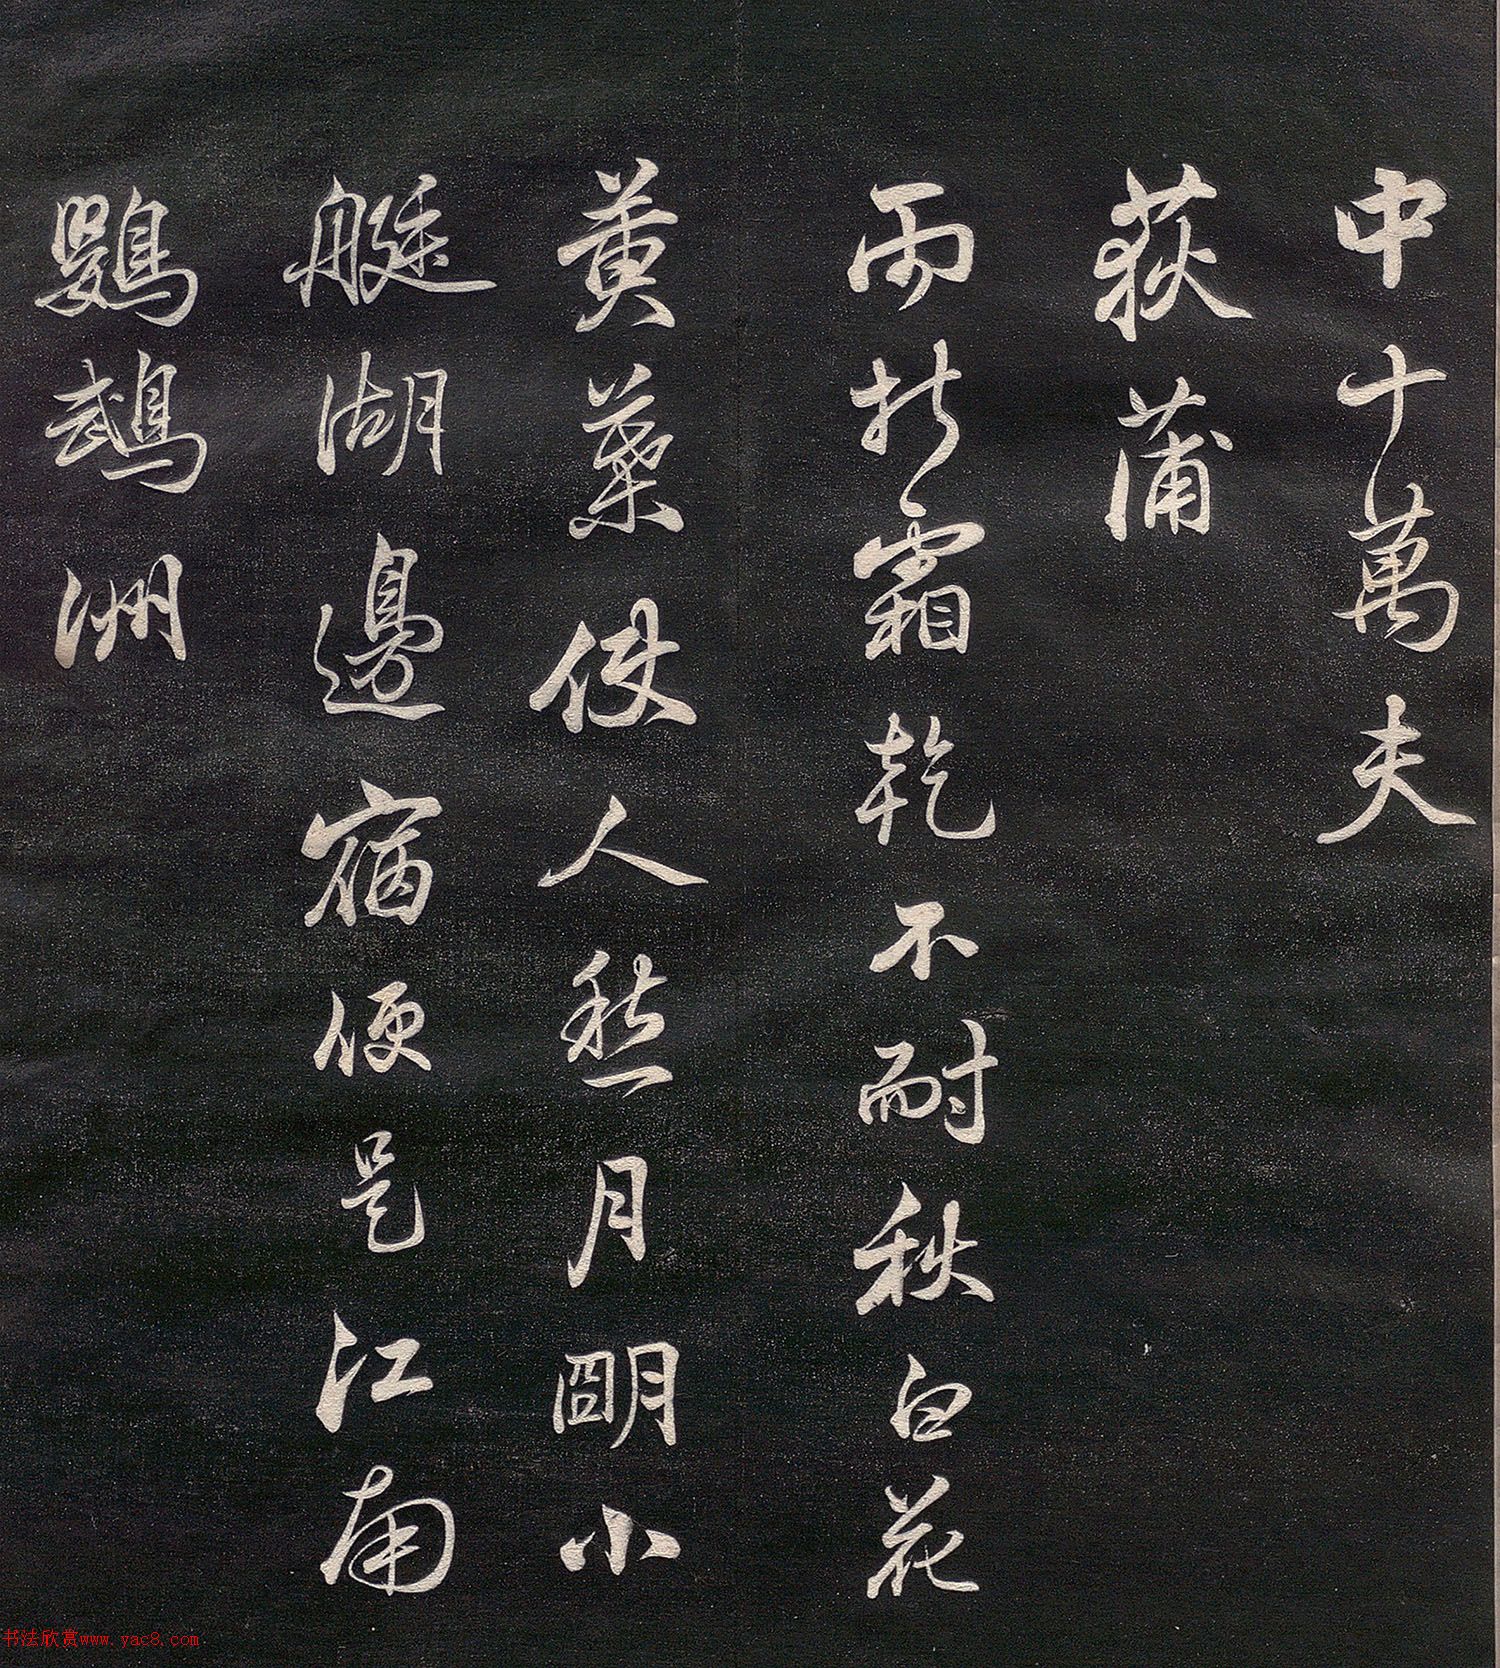 中十萬夫
荻蒲
雨折霜乾不耐秋白花
黄葉使人愁月明小
艇湖邊宿便是江南
鸚鵡洲
书法欣赏www.yac8.com